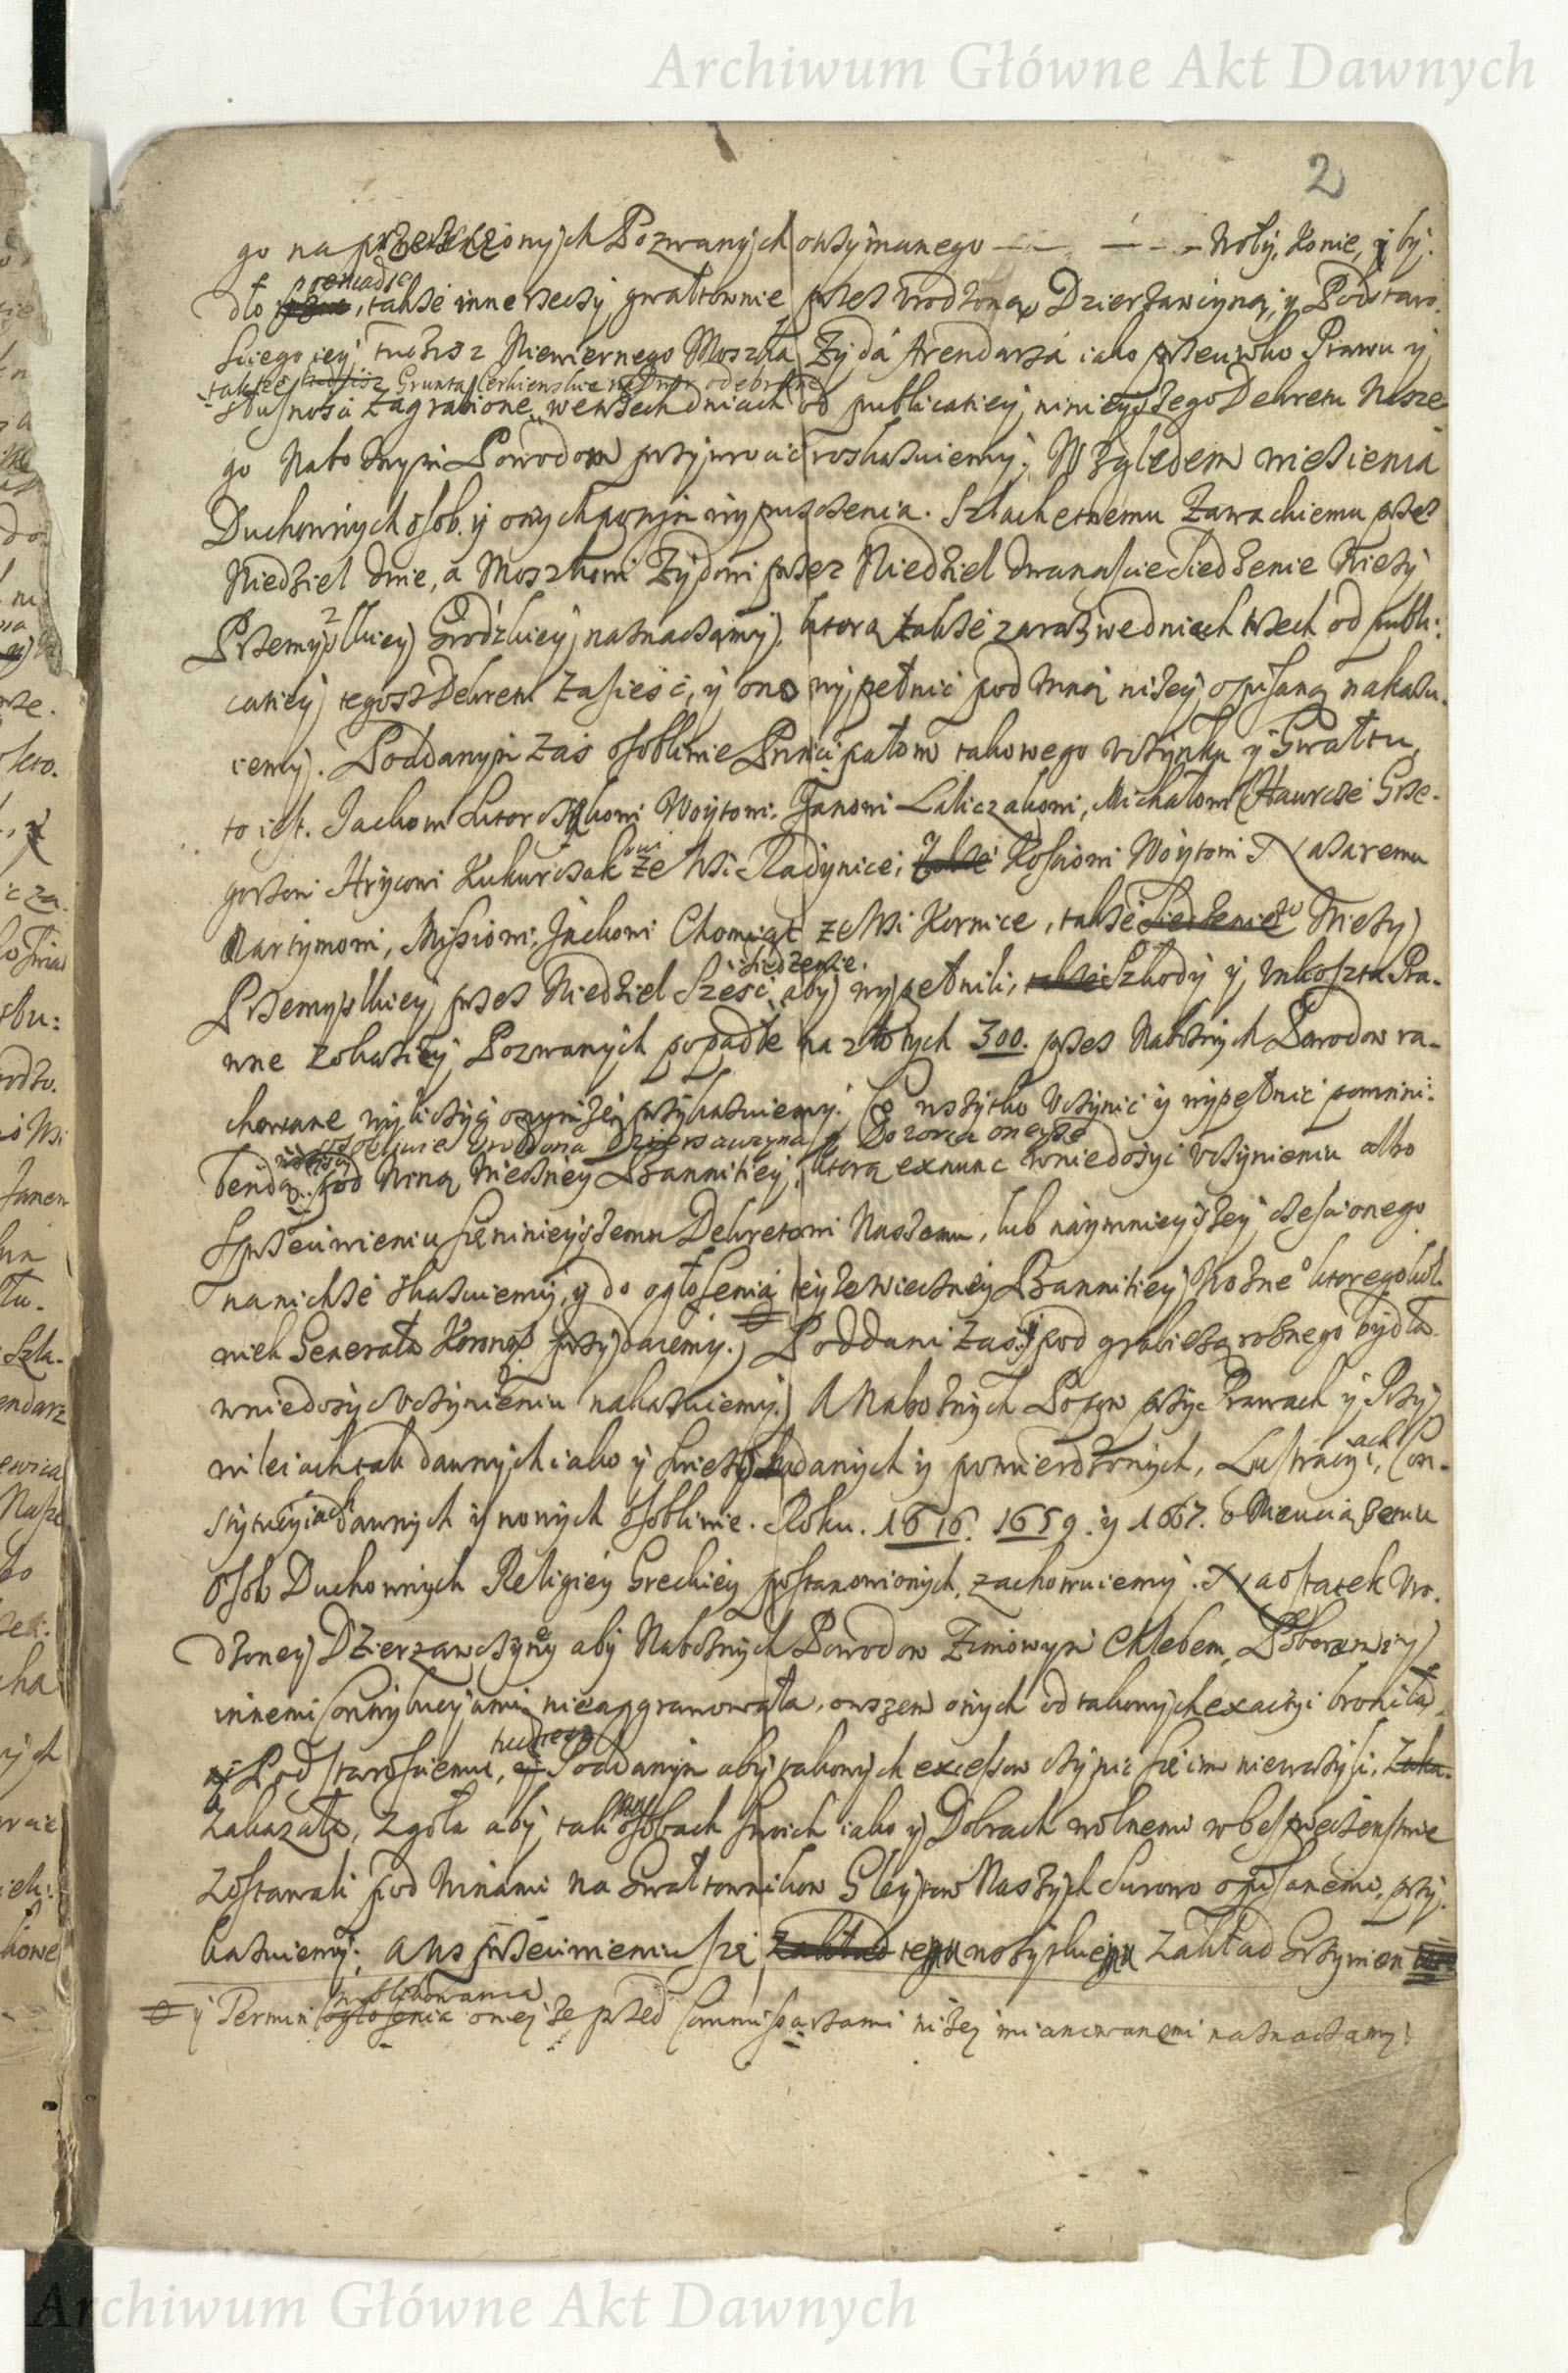 Archiwum Główne Akt Dawnych
2
go na Pozwanych otrzymanego — — — — Woły, Konie, y by-
pieniądze
dło, także inne rzeczy, gwałtownie przez Vrodzoną Dzierżawczynę, y Podstaro-
ściego iey, tudzież Niewiernego Moszka Żyda Arendarza iako przeciwko Prawu y
także Grunta Cerkiewskie na Dwor odebrane
słusznosci zagrabione, we trzech dniach od publicatiey ninieyszego Dekretu Nasze-
go Nabożnym Powodom przywrocić roskazuiemy. Względem więzienia
Duchownych osob, y onych wypuszczenia. Szlachetnemu Zawackiemu przez
Niedziel dwie, a Moszkowi Żydowi przez Niedziel dwanaście siedzenie Wieży
Przemyslkiey Grodzkiey naznaczamy, ktorą także zaraz we dniach trzech od publi-
catiey tegosz Dekretu zasieść, y ono wypełnić pod winą niżey opisaną nakazu-
iemy. Poddanym zaś osobliwie Principałom takowego vczynku y Gwałtu,
to iest. Jackowi Woytowi, Janowi Laliczakowi, Michałowi Hawrcze Grze-
gorzowi Hrycowi Kukurczakowi ze Wsi Radynice, Kościowi Woytowi Nazaremu
Martynowi, Misiowi, Jackowi Chomiąk ze Wsi Hornice, także Wieży
siedzenie
Przemyslkiey przez Niedziel sześć, aby wypełnili, Szkody y vnkoszta Pra-
wne z okaziey Pozwanych popadłe na złotych 300. przez Nabożnych Powodow ra-
chowane wyliczyć przykazuiemy. Co wszytko vczynić y wypełnić powinni
Vrodzona Dzierżawczyna y Dozorca oneyże
będą pod Winą Wieczney Bannitiey, ktorą exnunc w niedosyć vczynieniu albo
sprzeciwieniu się ninieyszemu Dekretowi Naszemu, lub naymnieyszey częsci onego
na nichże skazuiemy, y do ogłoszenia teyże wieczney Bannitiey Woźnego ktoregokol-
wiek Generała Koronnego przydaiemy. Poddani zaś pod grabieżą robnego bydła
w niedosyć vczynieniu nakazuiemy. A Nabożnych Popow przy Prawach y Przy-
wileiach tak dawnych iako y świeżo nadanych y potwierdzonych, Lustracyiach, Con-
stytucyiach dawnych y nowych osobliwie. Roku. 1616. 1659. y 1667. o nieuciążeniu
Osob Duchownych Religiey Greckiey postanowionych, zachowuiemy. Naostatek Vro-
dzoney Dzierzawczyny aby Nabożnych Powodow Zimowym Chlebem, Poborami y
innemi contribucyiami nieaggrawowała, owszem onych od takowych exactyi broniła
tudzież
Podstarościemu, Poddanym aby takowych excessow czynić się im nieważyli,
zakazała, zgoła aby tak na osobach swoich iako y Dobrach wolnemi w bespieczenstwie
zostawali pod Winami na Gwałtownikow Gleytow Naszych surowo opisanemi, przy-
kazuiemy. A w sprzeciwieniu się temu wszytkiemu zakład Grzywien
publikowania
y Termin oneyże przed Commissarzami niżey mianowanemi naznaczamy.
Archiwum Główne Akt Dawnych